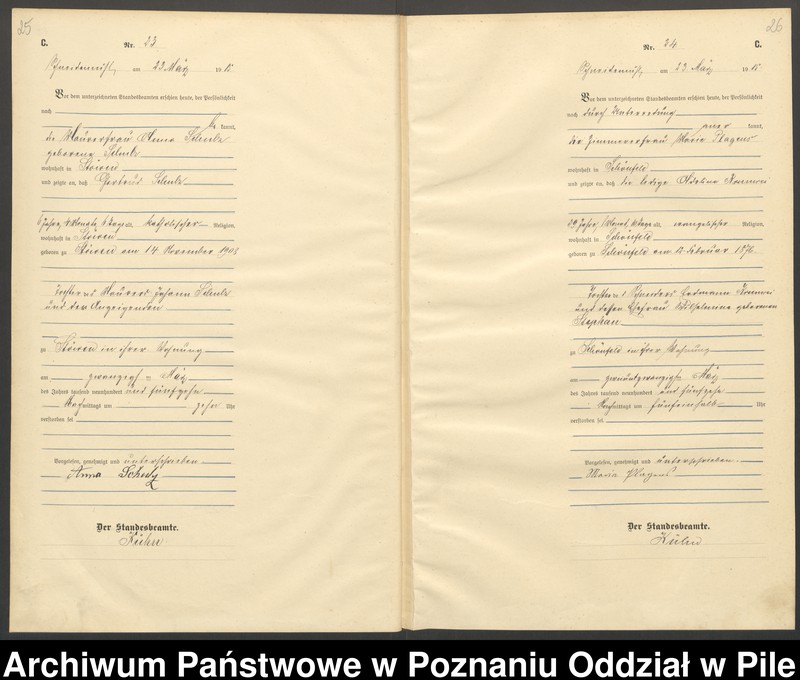 25
C.
Nr. 23
Schneidemühl, am 23. März 1915
Vor dem unterzeichneten Standesbeamten erschien heute, der Persönlichkeit
nach
kannt,
die Maurerfrau Anna
geborene
wohnhaft in Stöwen
und zeigte an, daß Gertrud
6 Jahre, 4 Monate, 6 Tage alt, katholischer Religion,
wohnhaft in Stöwen
geboren zu Stöwen am 14. November 1908
Tochter des Maurers Johann
und der Anzeigenden
zu Stöwen in ihrer Wohnung
am zwanzigsten März
des Jahres tausend neunhundert und fünfzehn
mittags um zehn Uhr
verstorben sei
Vorgelesen, genehmigt und unterschrieben
Anna
Der Standesbeamte.
Kühn
26
Nr. 24
C.
Schneidemühl, am 23. März 1915
Vor dem unterzeichneten Standesbeamten erschien heute, der Persönlichkeit
nach durch Unterredung
kannt,
die Zimmererfrau Maria Plagens
wohnhaft in Schönfeld
und zeigte an, daß die ledige
39 Jahre, 1 Monat, Tage alt, evangelischer Religion,
wohnhaft in Schönfeld
geboren zu Schönfeld am Februar 1876
Tochter des Schneiders Erdmann
und dessen Ehefrau Wilhelmine geborenen
Stephan
zu Schönfeld in ihrer Wohnung
am März
des Jahres tausend neunhundert und fünfzehn
mittags um fünfeinhalb Uhr
verstorben sei
Vorgelesen, genehmigt und unterschrieben
Maria Plagens
Der Standesbeamte.
Kühn
Archiwum Państwowe w Poznaniu Oddział w Pile